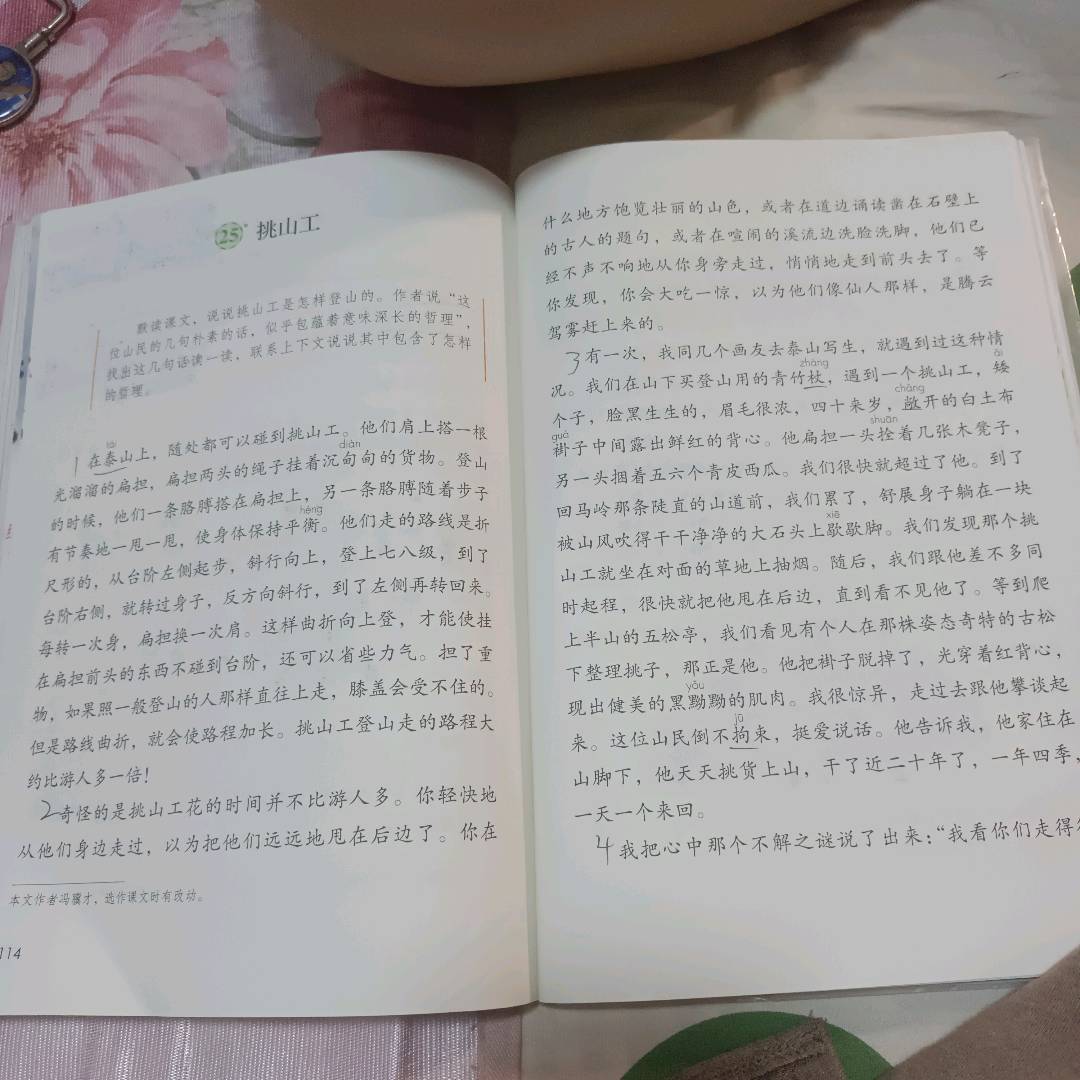 25* 挑山工
默读课文，说说挑山工是怎样登山的。作者说“这
位山民的几句朴素的话，似乎包蕴着意味深长的哲理”，
找出这几句话读一读，联系上下文说说其中包含了怎样
的哲理。
tài
1在泰山上，随处都可以碰到挑山工。他们肩上搭一根
diàn
光溜溜的扁担，扁担两头的绳子挂着沉甸甸的货物。登山
的时候，他们一条胳膊搭在扁担上，另一条胳膊随着步子
héng
有节奏地一甩一甩，使身体保持平衡。他们走的路线是折
尺形的，从台阶左侧起步，斜行向上，登上七八级，到了
台阶右侧，就转过身子，反方向斜行，到了左侧再转回来。
每转一次身，扁担换一次肩。这样曲折向上登，才能使挂
在扁担前头的东西不碰到台阶，还可以省些力气。担了重
物，如果照一般登山的人那样直往上走，膝盖会受不住的。
但是路线曲折，就会使路程加长。挑山工登山走的路程大
约比游人多一倍！
2奇怪的是挑山工花的时间并不比游人多。你轻快地
从他们身边走过，以为把他们远远地甩在后边了。你在
本文作者冯骥才，选作课文时有改动。
114
什么地方饱览壮丽的山色，或者在道边诵读凿在石壁上
的古人的题句，或者在喧闹的溪流边洗脸洗脚，他们已
经不声不响地从你身旁走过，悄悄地走到前头去了。等
你发现，你会大吃一惊，以为他们像仙人那样，是腾云
驾雾赶上来的。
3有一次，我同几个画友去泰山写生，就遇到过这种情
zhàng ǎi
况。我们在山下买登山用的青竹杖，遇到一个挑山工，矮
chǎng
个子，脸黑生生的，眉毛很浓，四十来岁，敞开的白土布
guà shuān
褂子中间露出鲜红的背心。他扁担一头拴着几张木凳子，
另一头捆着五六个青皮西瓜。我们很快就超过了他。到了
回马岭那条陡直的山道前，我们累了，舒展身子躺在一块
xiē
被山风吹得干干净净的大石头上歇歇脚。我们发现那个挑
山工就坐在对面的草地上抽烟。随后，我们跟他差不多同
时起程，很快就把他甩在后边，直到看不见他了。等到爬
上半山的五松亭，我们看见有个人在那株姿态奇特的古松
下整理挑子，那正是他。他把褂子脱掉了，光穿着红背心，
yǒu
现出健美的黑黝黝的肌肉。我很惊异，走过去跟他攀谈起
jū
来。这位山民倒不拘束，挺爱说话。他告诉我，他家住在
山脚下，他天天挑货上山，干了近二十年了，一年四季，
一天一个来回。
4我把心中那个不解之谜说了出来：“我看你们走得